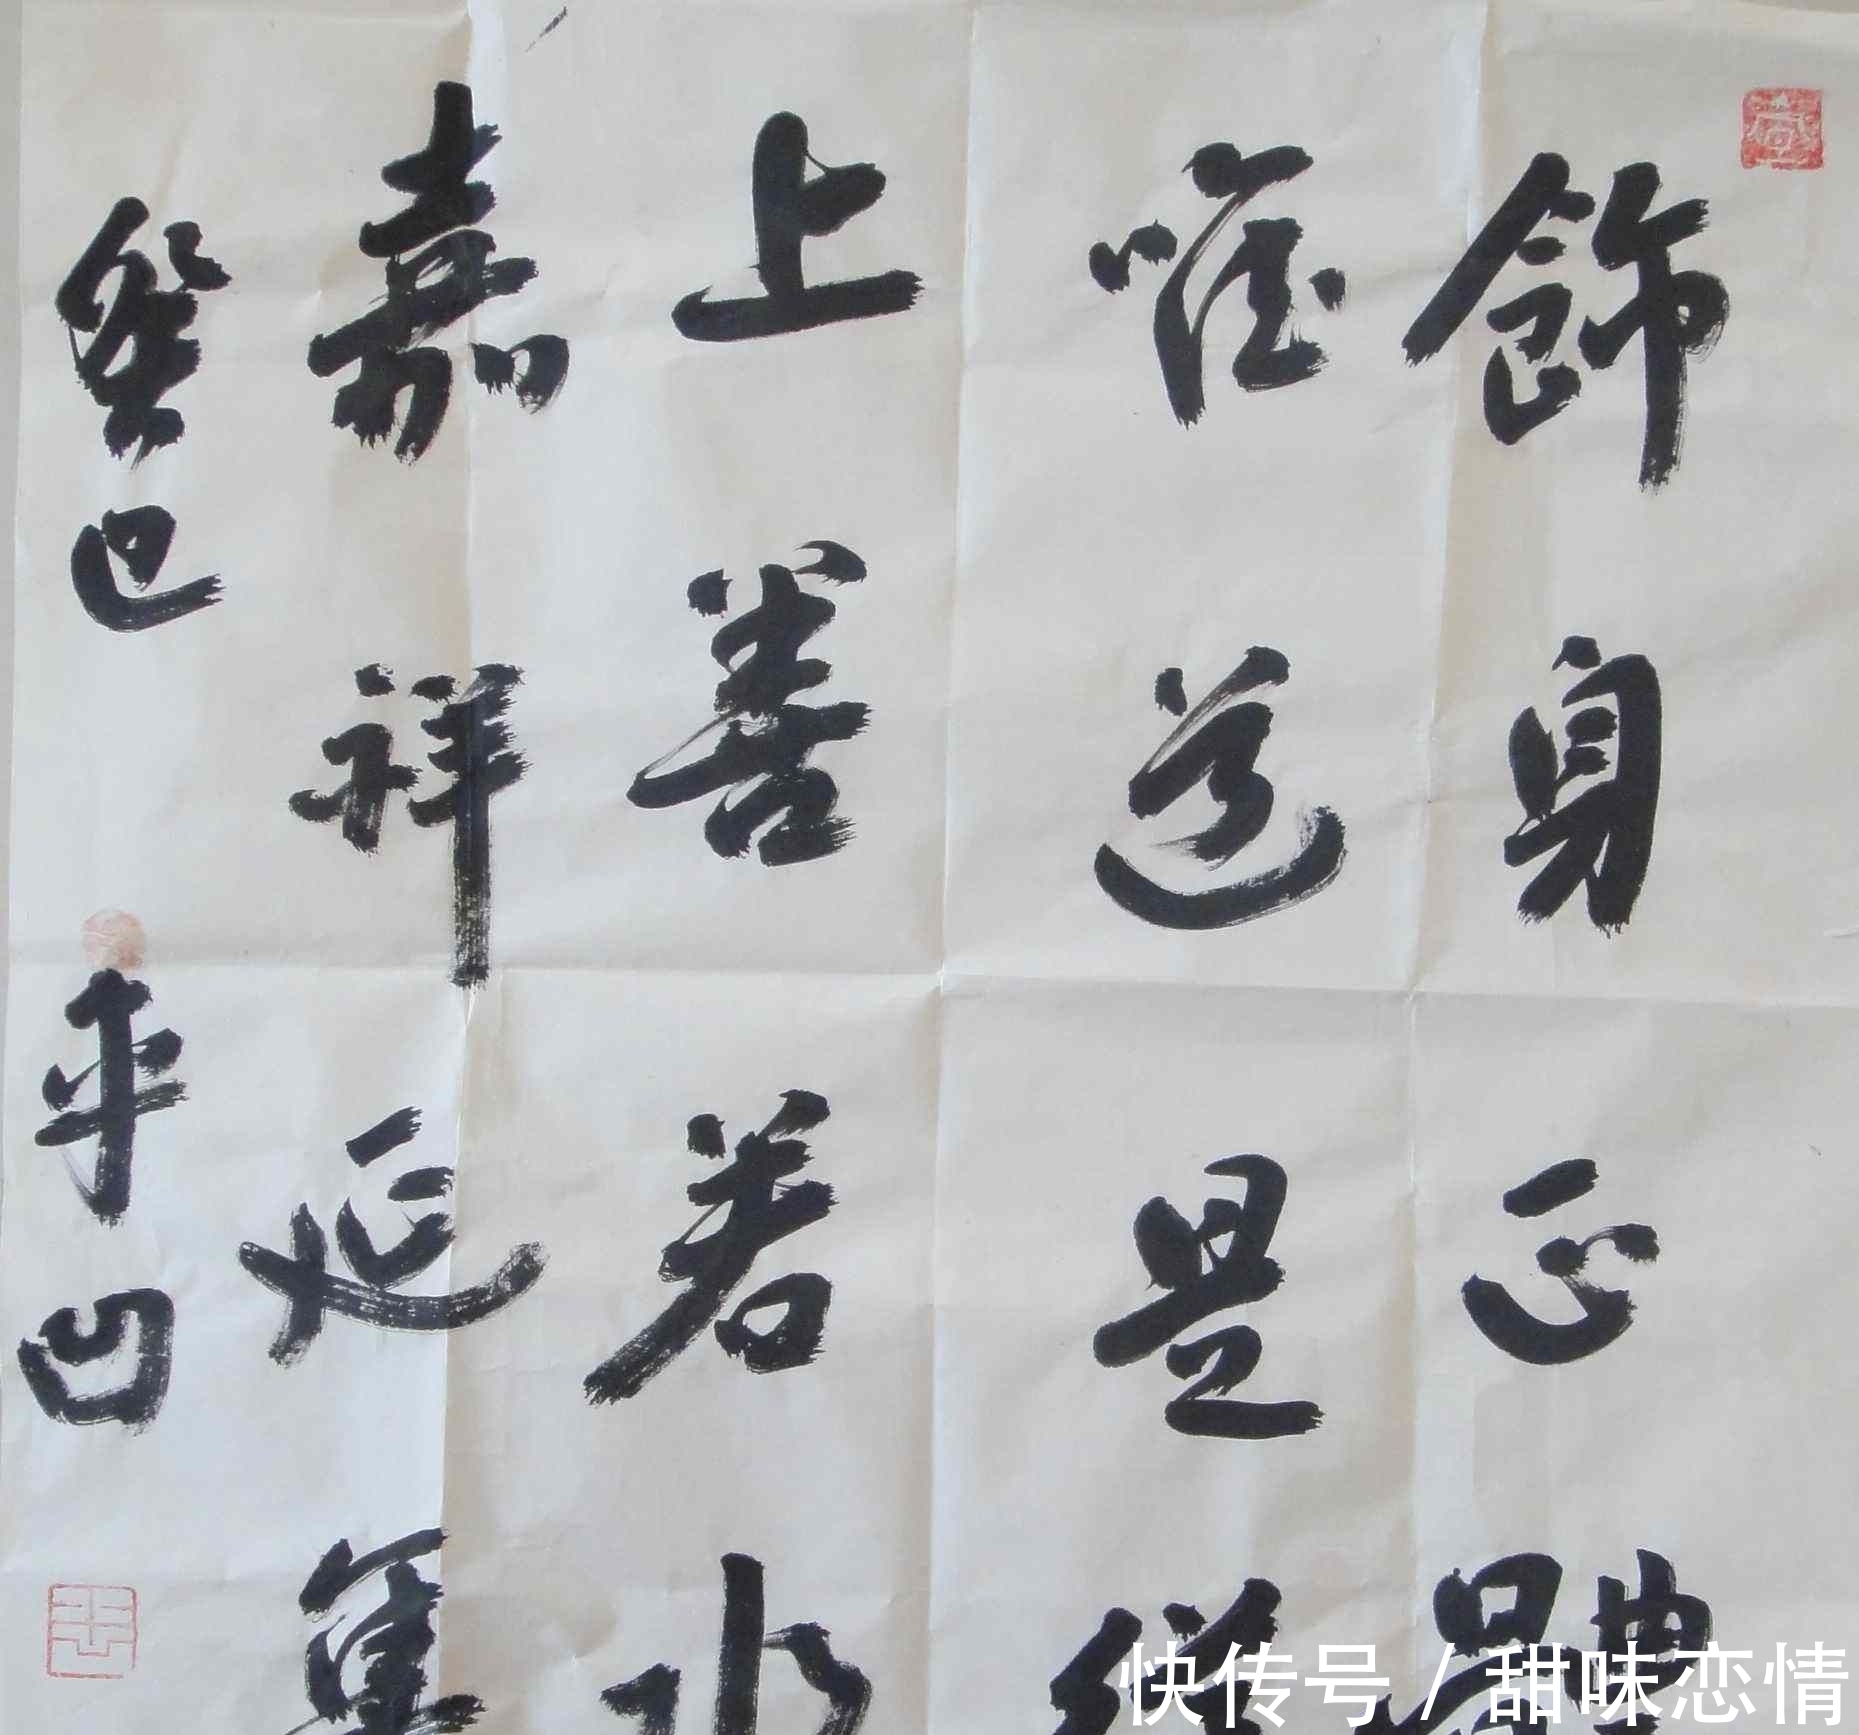 飾身正體
唯道是從
上善若水
嘉祥延集
癸巳 平凹
快传号/甜味恋情